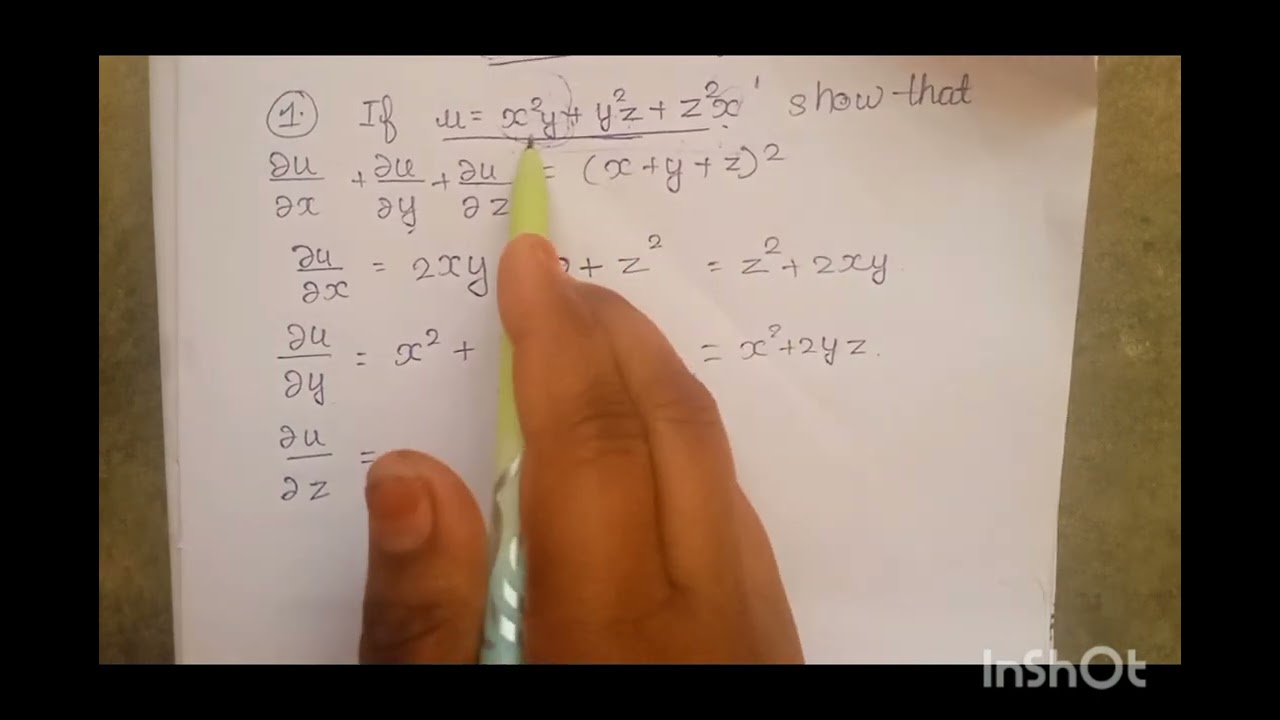 1. If u = x²y + y²z + z²x' show that
∂u/∂x + ∂u/∂y + ∂u/∂z = (x+y+z)²
∂u/∂x = 2xy + z² = z² + 2xy
∂u/∂y = x² + = x² + 2yz.
∂u/∂z =
InShOt